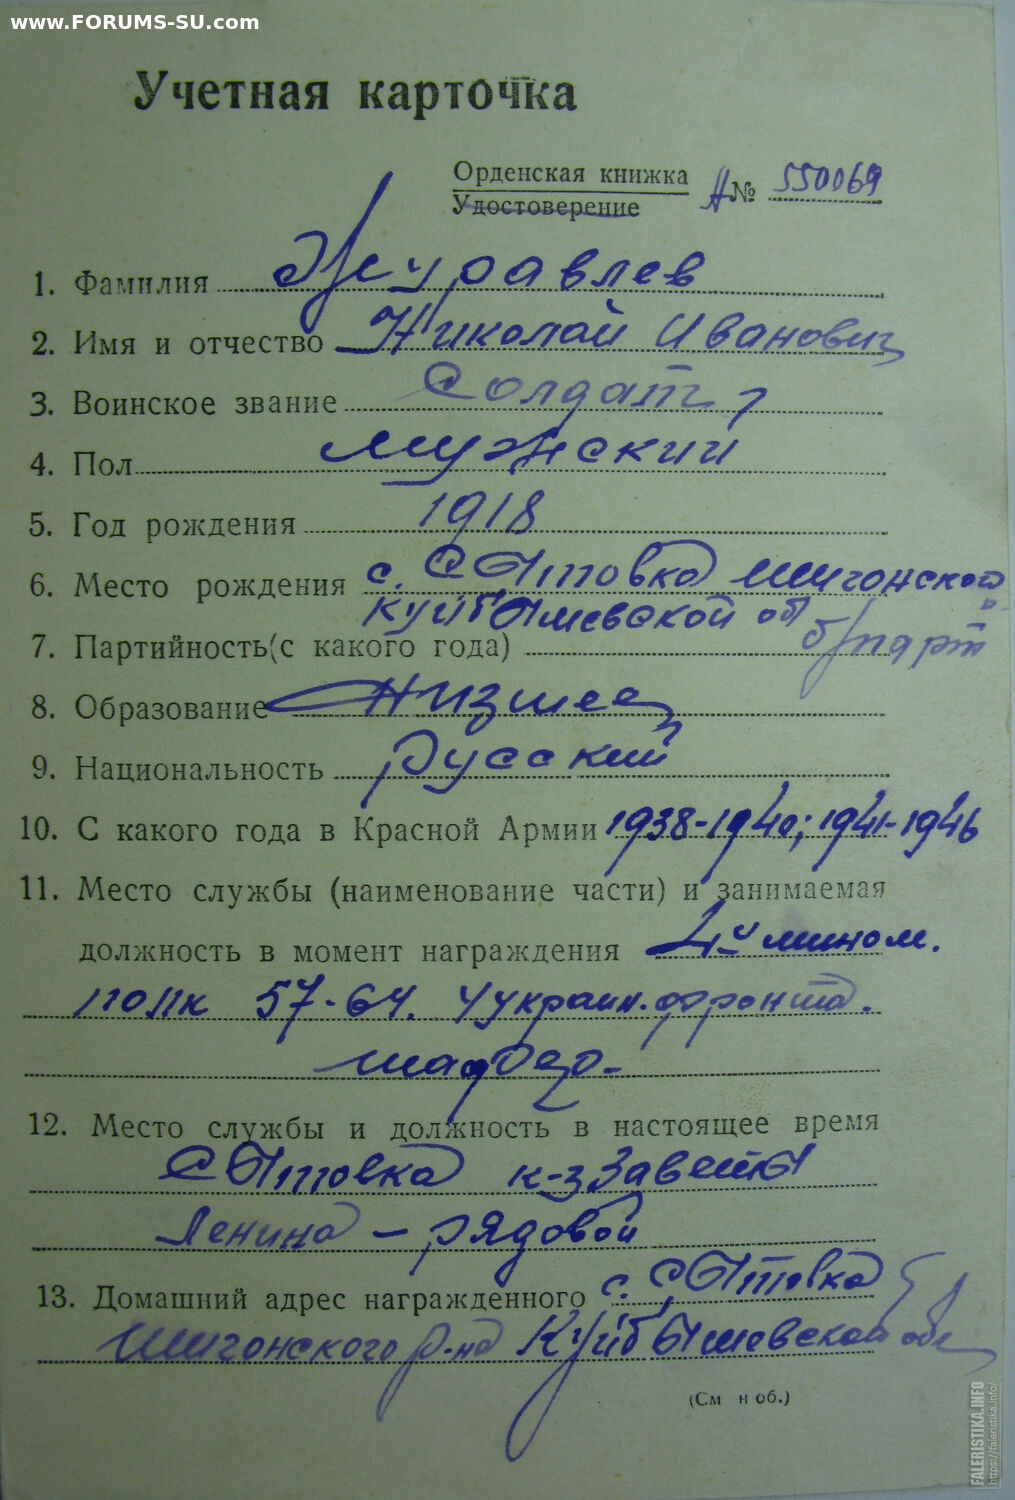 www.FORUMS-SU.com
Учетная карточка
Орденская книжка
Удостоверение
А № 550069
1. Фамилия Журавлев
2. Имя и отчество Николай Иванович
3. Воинское звание Солдат
4. Пол мужский
5. Год рождения 1918
6. Место рождения с. Сытовка Шигонского
куйбышевской об
7. Партийность (с какого года) б/парт
8. Образование Низшее
9. Национальность Русский
10. С какого года в Красной Армии 1938-1940; 1941-1946
11. Место службы (наименование части) и занимаемая
должность в момент награждения 4й мином.
полк 57-64. 4 украин. фронта.
12. Место службы и должность в настоящее время
Сытовка к-з Заветы
Ленина – рядовой
13. Домашний адрес награжденного с. Сытовка
Шигонского р-на Куйбышевской обл
(См н об.)
FALERISTIKA.INFO
https://faleristika.info/